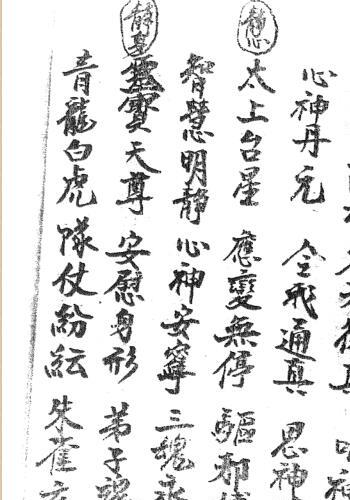 心神丹元 令我通真 思神
靜心
太上台星 應變無停 驅邪
智慧明靜 心神安寧 三魂永
靜身
靈寶天尊 安慰身形 弟子魂
青龍白虎 隊仗紛紜 朱雀玄